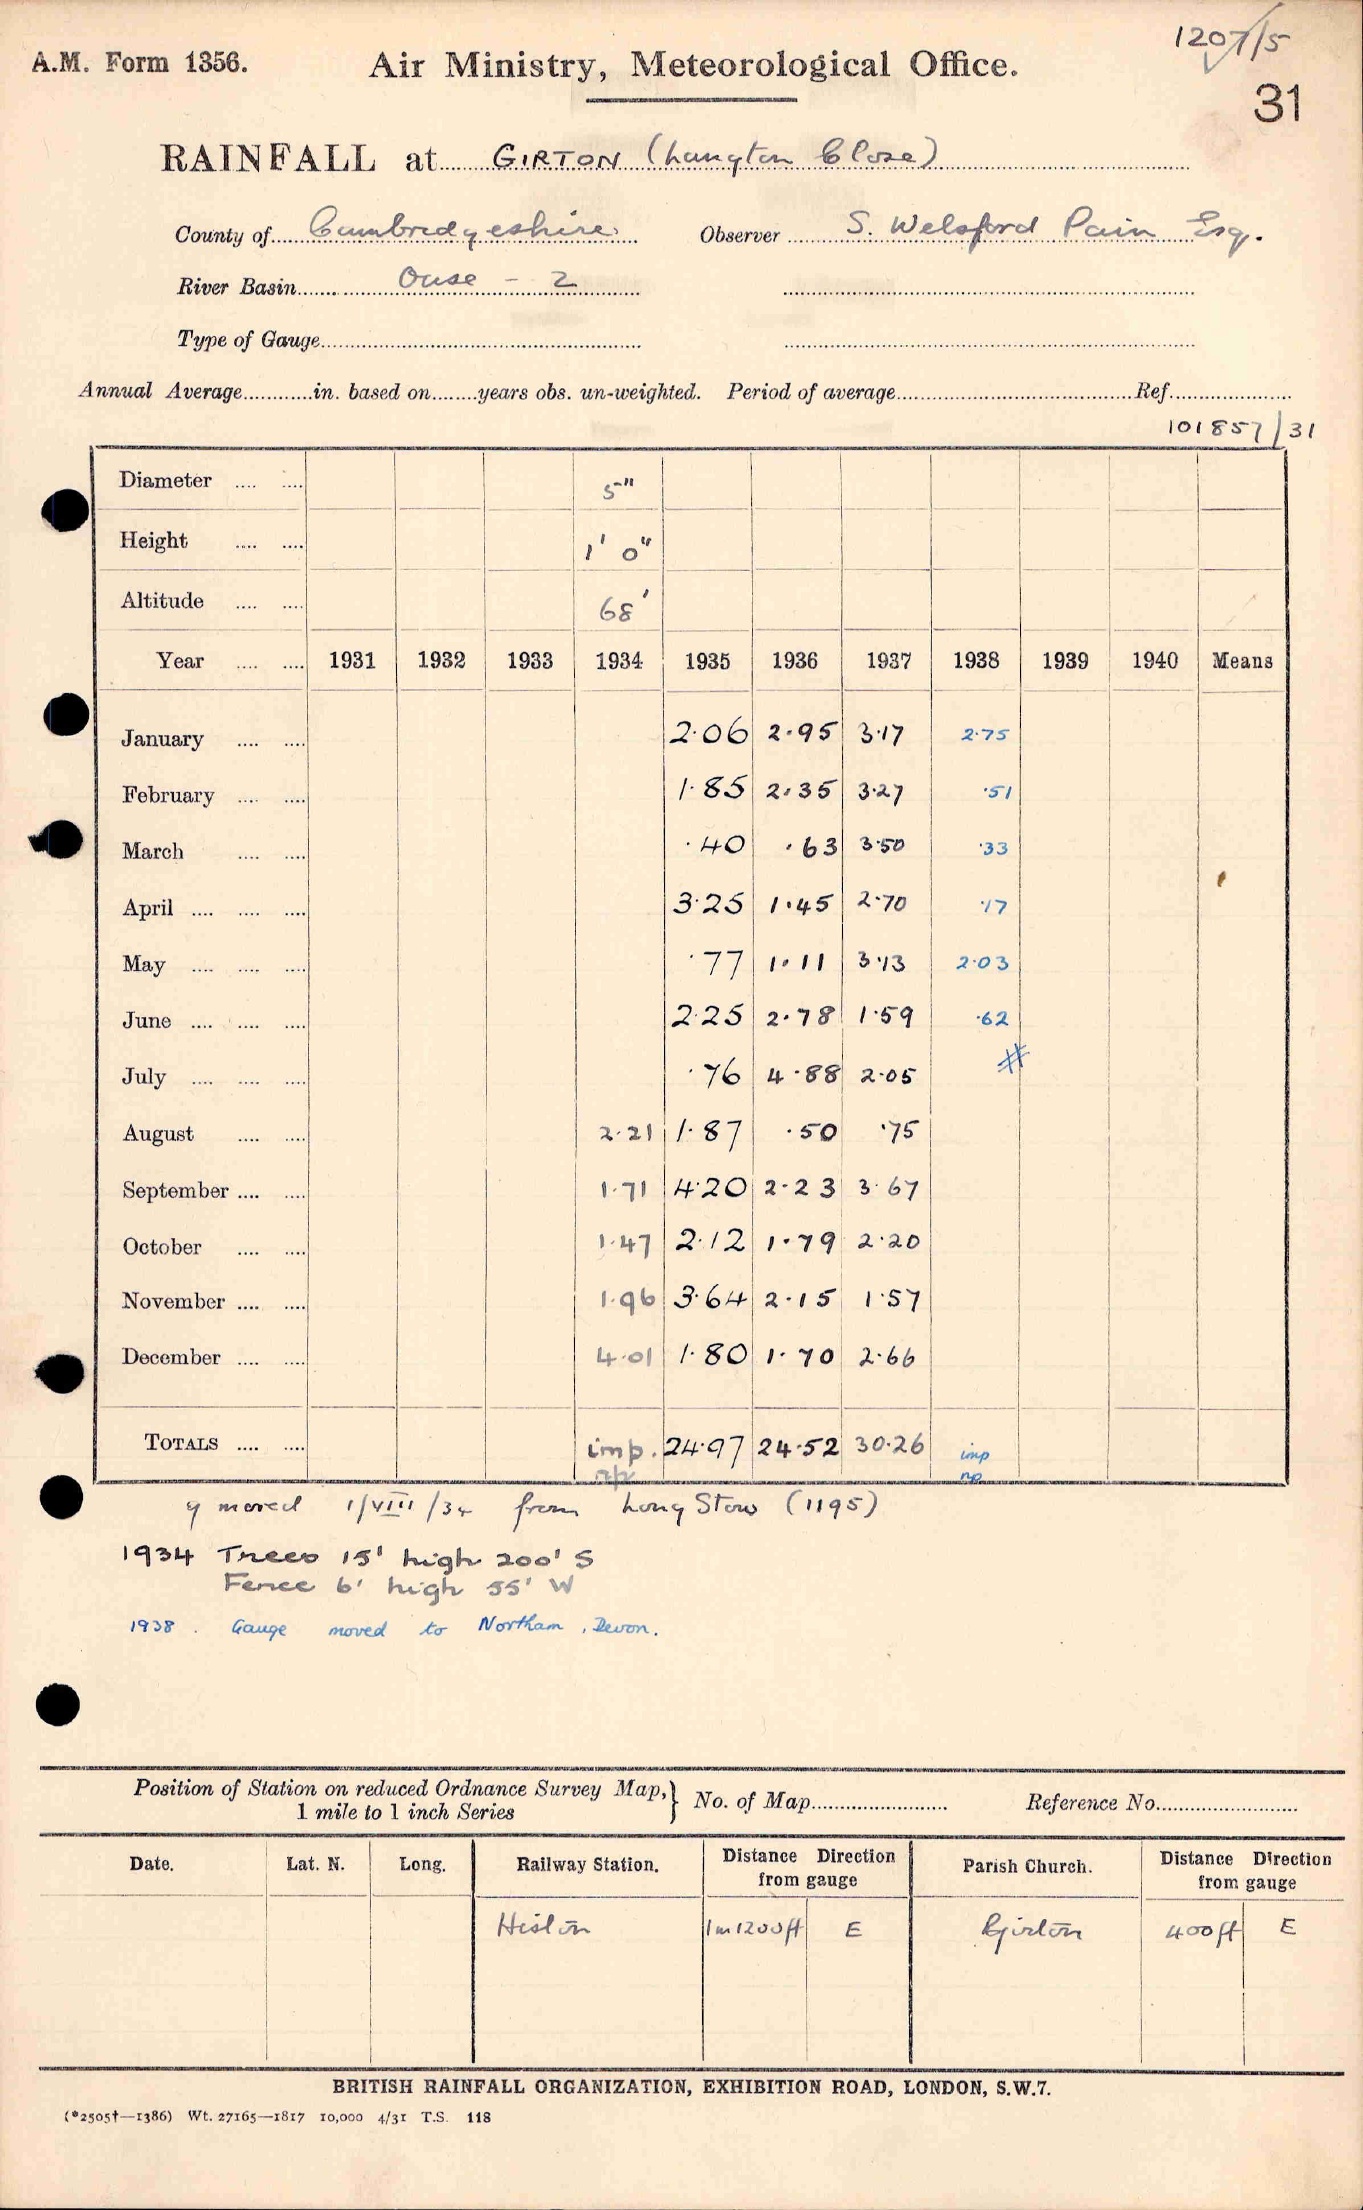 1207/5
A.M. Form 1356. Air Ministry, Meteorological Office.
31
RAINFALL at GIRTON (Langton Close)
County of Cambridgeshire Observer S. Welsford Pain Esq.
River Basin Ouse - 2
Type of Gauge
Annual Average in. based on years obs. un-weighted. Period of average Ref.
101857/31
Diameter 5"
Height 1' 0"
Altitude 68'
Year 1931 1932 1933 1934 1935 1936 1937 1938 1939 1940 Means
January 2.06 2.95 3.17 2.75
February 1.85 2.35 3.27 .51
March .40 .63 3.50 .33
April 3.25 1.45 2.70 .17
May .77 1.11 3.13 2.03
June 2.25 2.78 1.59 .62
July .76 4.88 2.05 #
August 2.21 1.87 .50 .75
September 1.71 4.20 2.23 3.67
October 1.47 2.12 1.79 2.20
November 1.96 3.64 2.15 1.57
December 4.01 1.80 1.70 2.66
TOTALS imp. 24.97 24.52 30.26 imp
np np
g moved 1/VIII/34 from Long Stow (1195)
1934 Trees 15' high 200' S
Fence 6' high 55' W
1938. Gauge moved to Northam, Devon.
Position of Station on reduced Ordnance Survey Map, } No. of Map Reference No.
1 mile to 1 inch Series
Date. Lat. N. Long. Railway Station. Distance Direction from gauge Parish Church. Distance Direction from gauge
Histon 1m 1200ft E Girton 400ft E
BRITISH RAINFALL ORGANIZATION, EXHIBITION ROAD, LONDON, S.W.7.
(*2505†—1386) Wt. 27165—1817 10,000 4/31 T.S. 118